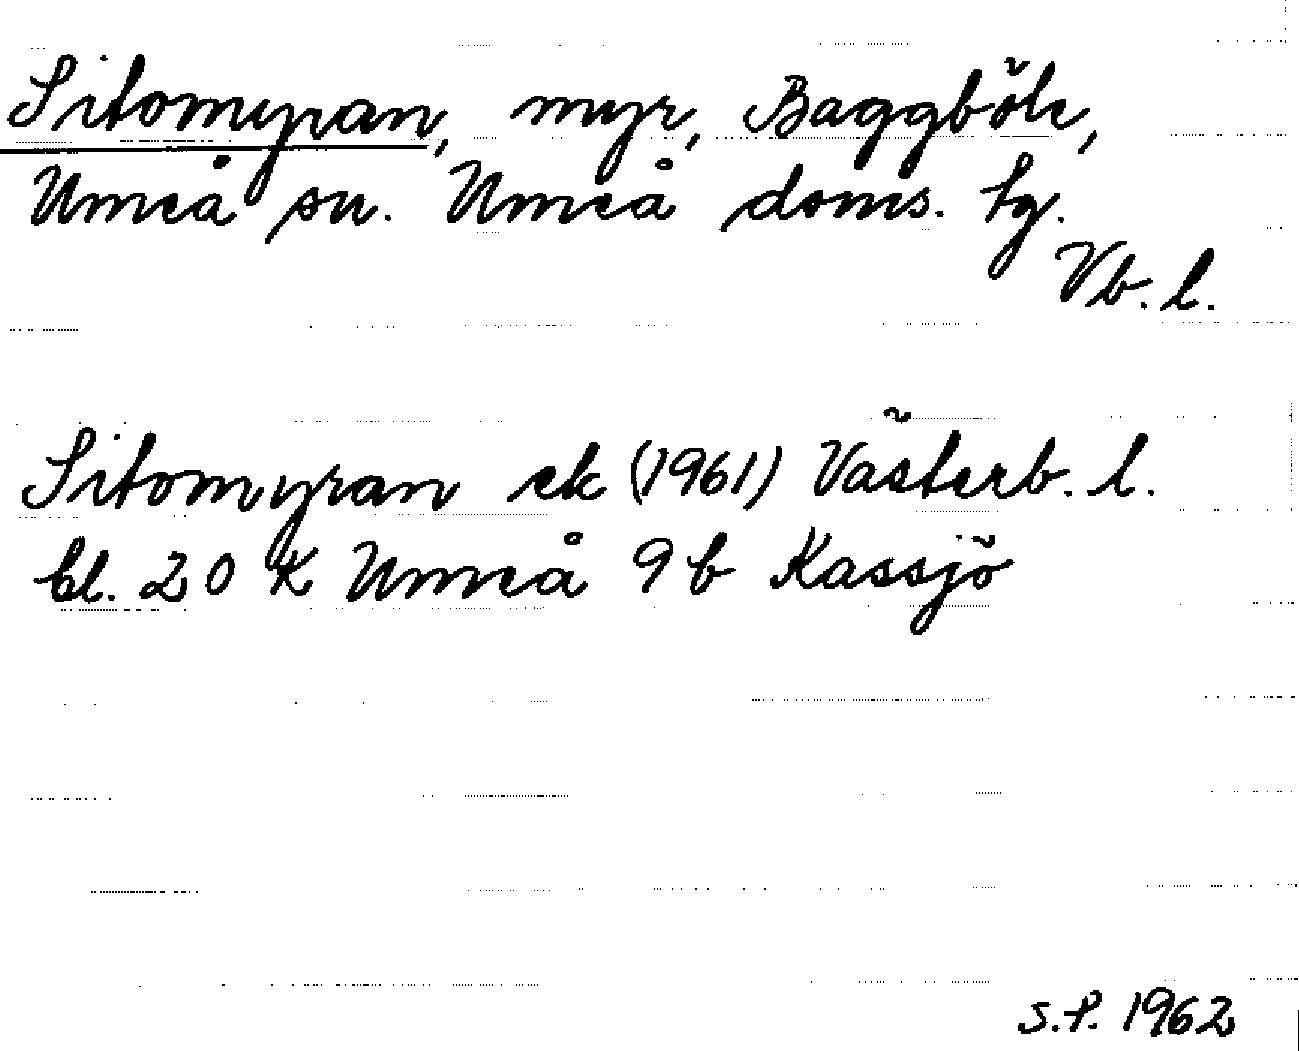 Sitomyran, myr, Baggböle,
Umeå sn. Umeå doms. tg.
Vb. l.
Sitomyran ek (1961) Västerb. l.
bl. 20 K Umeå 9 b Kassjö
S.P. 1962